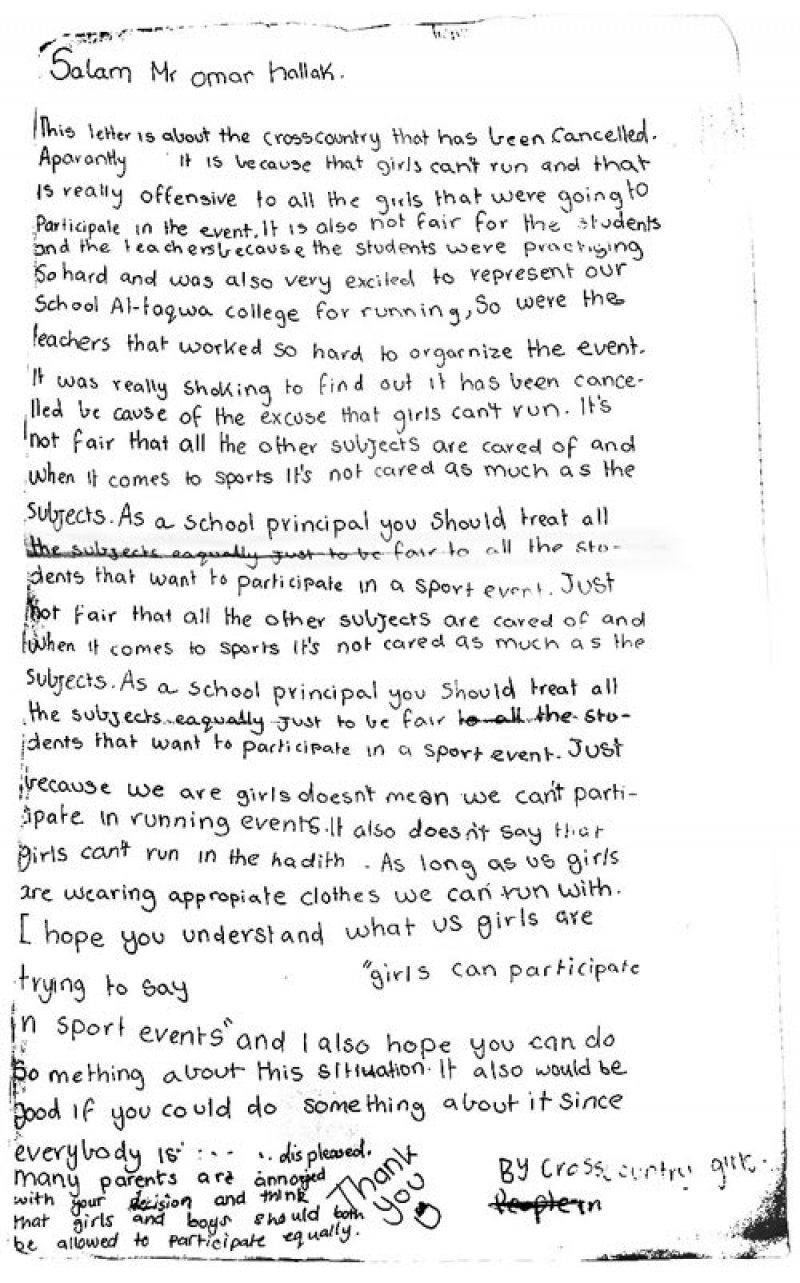 Salam Mr omar hallak.
This letter is about the crosscountry that has been Cancelled.
Aparantly It is because that girls can't run and that
is really offensive to all the girls that were going to
Participate in the event. It is also not fair for the students
and the teachers because the students were practising
So hard and was also very excited to represent our
School Al-taqwa college for running, So were the
teachers that worked so hard to orgarnize the event.
It was really shoking to find out it has been cance-
lled be cause of the excuse that girls can't run. It's
not fair that all the other subjects are cared of and
when it comes to sports It's not cared as much as the
Subjects. As a school principal you should treat all
the subjects eaqually just to be fair to all the stu-
dents that want to participate in a sport event. Just
not fair that all the other subjects are cared of and
When it comes to sports It's not cared as much as the
Subjects. As a school principal you should treat all
the subjects eaqually just to be fair to all the stu-
dents that want to participate in a sport event. Just
because we are girls doesn't mean we can't parti-
ipate in running events. It also doesn't say that
girls can't run in the hadith. As long as us girls
are wearing appropiate clothes we can run with.
I hope you understand what us girls are
trying to say "girls can participate
in sport events" and I also hope you can do
Something about this sittuation. It also would be
good if you could do something about it since
everybody is displeased.
many parents are annoyed
with your decision and think
that girls and boys should both
be allowed to participate equally.
Thank
you
BY Cross country girls.